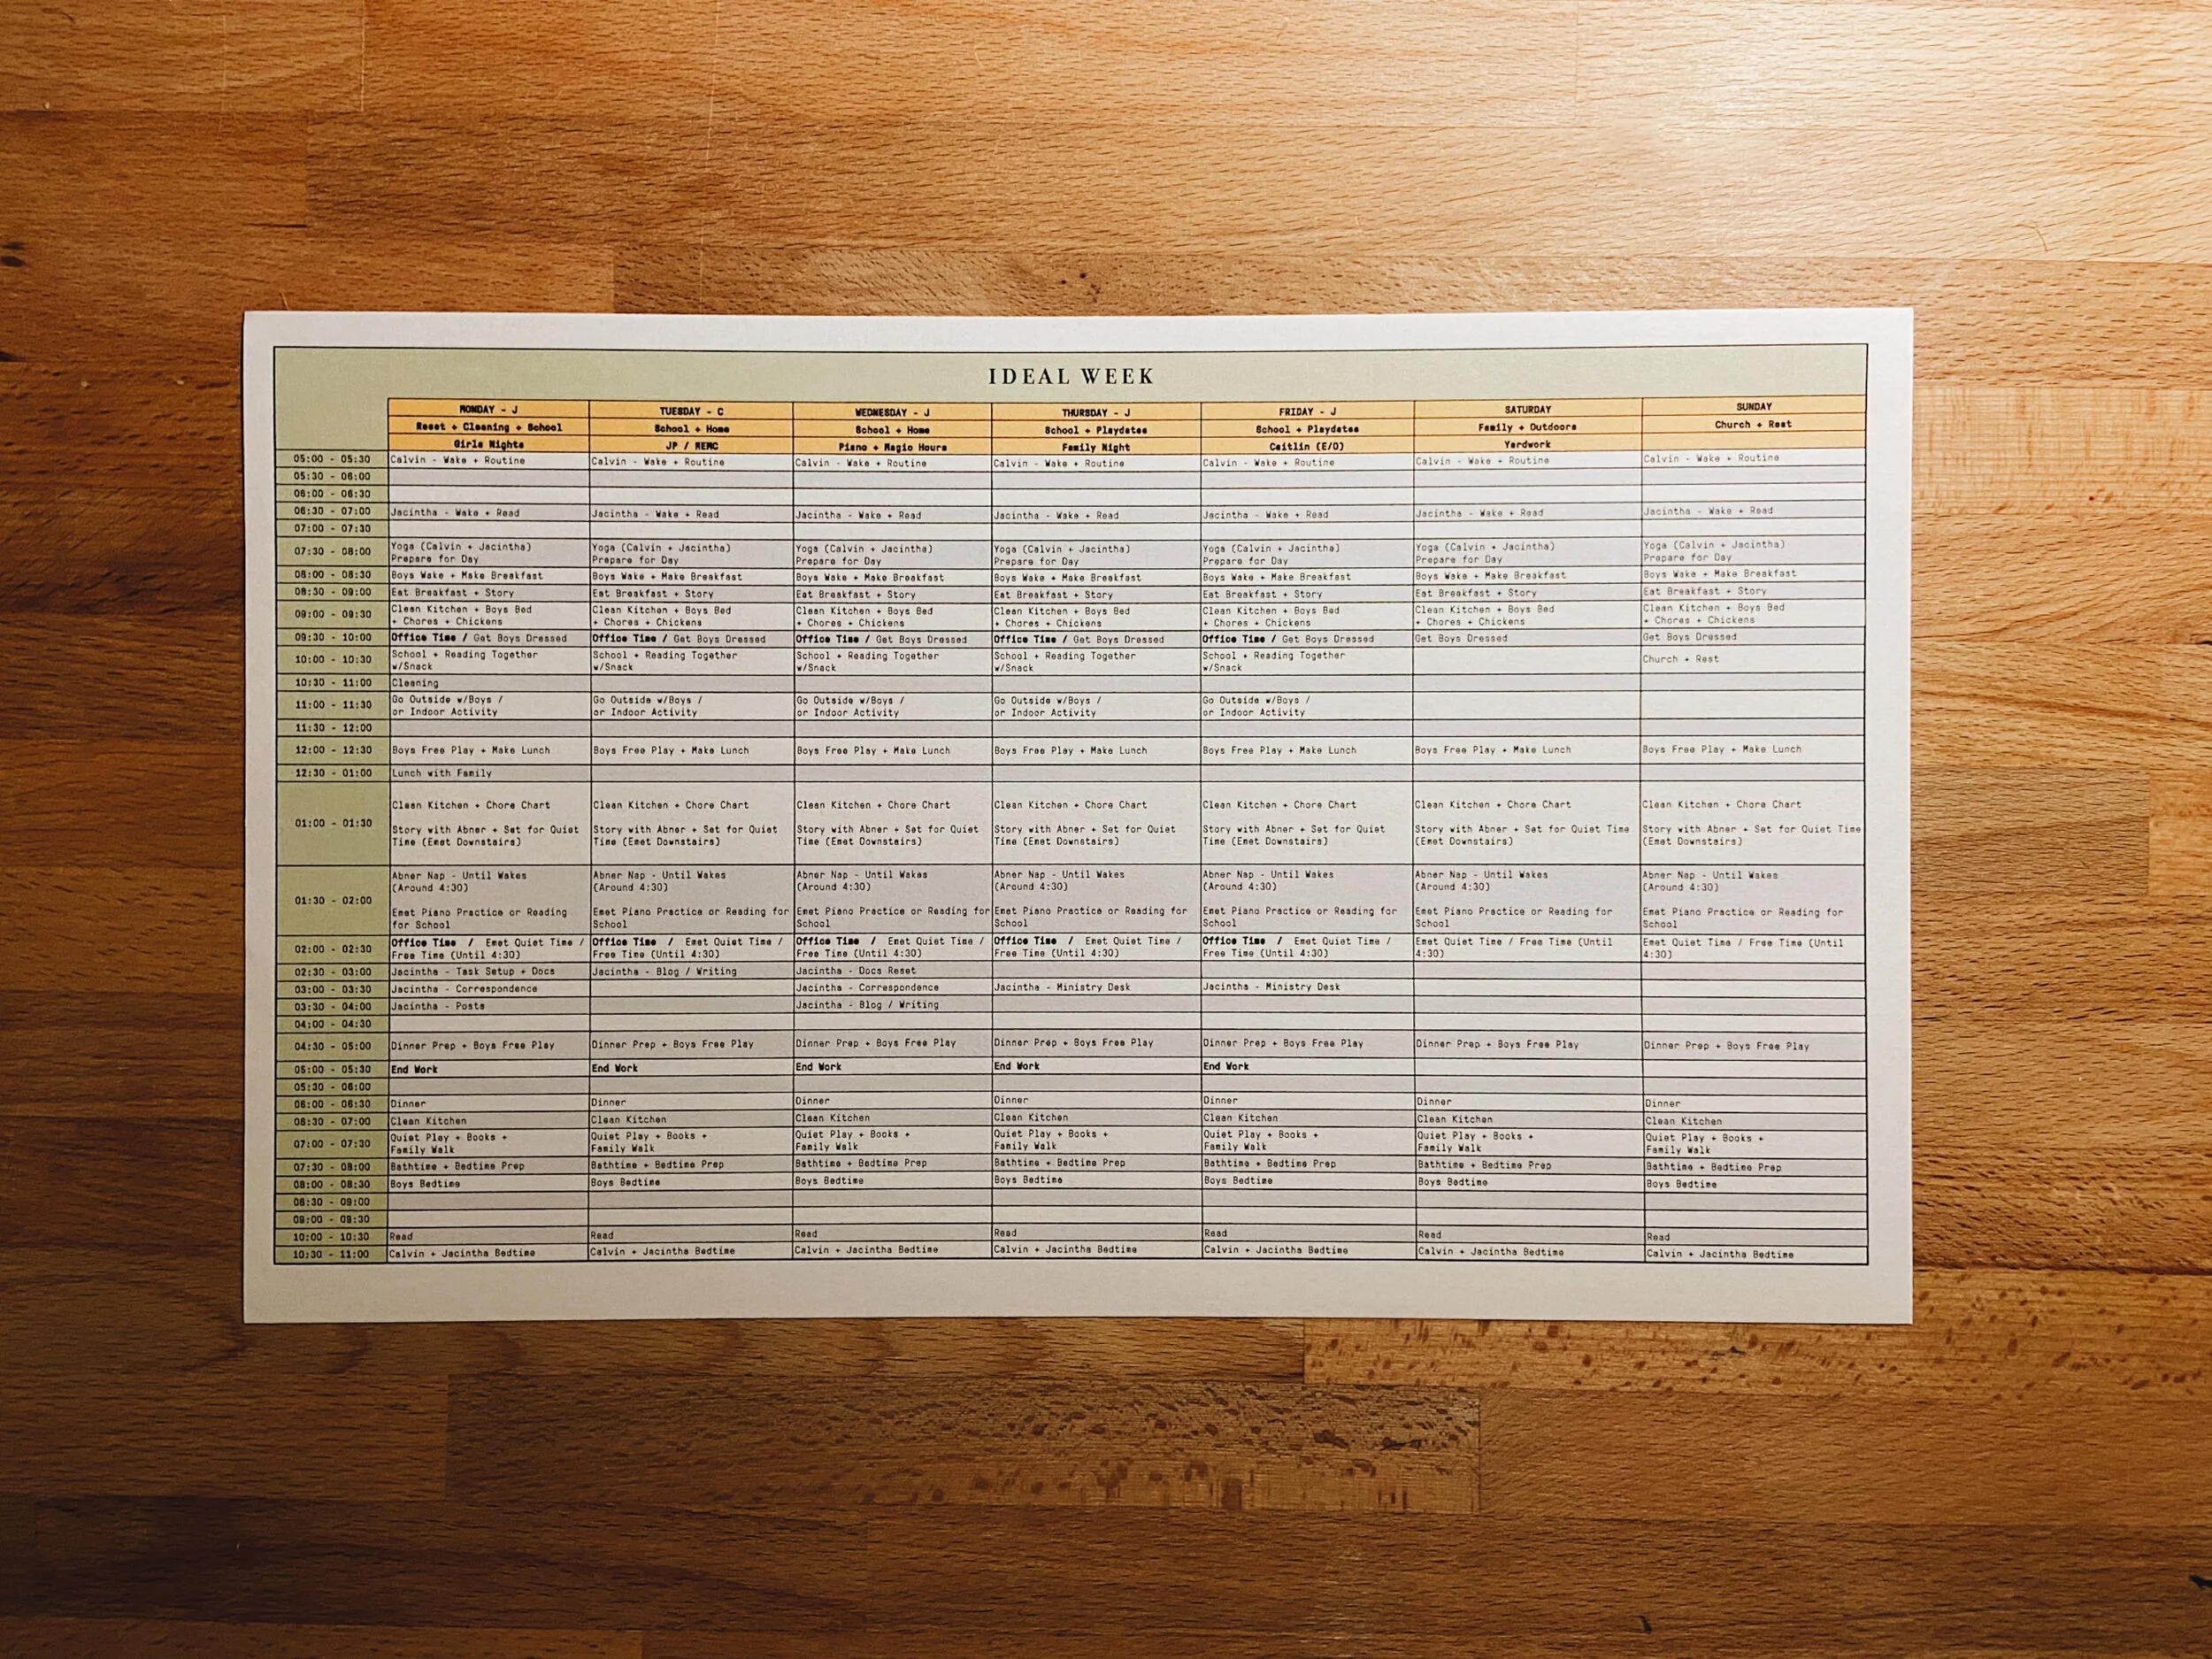 IDEAL WEEK
MONDAY - J TUESDAY - C WEDNESDAY - J THURSDAY - J FRIDAY - J SATURDAY SUNDAY
Reset + Cleaning + School School + Home School + Home School + Playdates School + Playdates Family + Outdoors Church + Rest
Girls Nights JP / REMC Piano + Magic Hours Family Night Caitlin (E/O) Yardwork
05:00 - 05:30 Calvin - Wake + Routine Calvin - Wake + Routine Calvin - Wake + Routine Calvin - Wake + Routine Calvin - Wake + Routine Calvin - Wake + Routine Calvin - Wake + Routine
05:30 - 06:00
06:00 - 06:30
06:30 - 07:00 Jacintha - Wake + Read Jacintha - Wake + Read Jacintha - Wake + Read Jacintha - Wake + Read Jacintha - Wake + Read Jacintha - Wake + Read Jacintha - Wake + Read
07:00 - 07:30
07:30 - 08:00 Yoga (Calvin + Jacintha) Yoga (Calvin + Jacintha) Yoga (Calvin + Jacintha) Yoga (Calvin + Jacintha) Yoga (Calvin + Jacintha) Yoga (Calvin + Jacintha) Yoga (Calvin + Jacintha)
Prepare for Day Prepare for Day Prepare for Day Prepare for Day Prepare for Day Prepare for Day Prepare for Day
08:00 - 08:30 Boys Wake + Make Breakfast Boys Wake + Make Breakfast Boys Wake + Make Breakfast Boys Wake + Make Breakfast Boys Wake + Make Breakfast Boys Wake + Make Breakfast Boys Wake + Make Breakfast
08:30 - 09:00 Eat Breakfast + Story Eat Breakfast + Story Eat Breakfast + Story Eat Breakfast + Story Eat Breakfast + Story Eat Breakfast + Story Eat Breakfast + Story
09:00 - 09:30 Clean Kitchen + Boys Bed Clean Kitchen + Boys Bed Clean Kitchen + Boys Bed Clean Kitchen + Boys Bed Clean Kitchen + Boys Bed Clean Kitchen + Boys Bed Clean Kitchen + Boys Bed
+ Chores + Chickens + Chores + Chickens + Chores + Chickens + Chores + Chickens + Chores + Chickens + Chores + Chickens + Chores + Chickens
09:30 - 10:00 Office Time / Get Boys Dressed Office Time / Get Boys Dressed Office Time / Get Boys Dressed Office Time / Get Boys Dressed Office Time / Get Boys Dressed Get Boys Dressed Get Boys Dressed
10:00 - 10:30 School + Reading Together School + Reading Together School + Reading Together School + Reading Together School + Reading Together Church + Rest
w/Snack w/Snack w/Snack w/Snack w/Snack
10:30 - 11:00 Cleaning
11:00 - 11:30 Go Outside w/Boys / Go Outside w/Boys / Go Outside w/Boys / Go Outside w/Boys / Go Outside w/Boys /
or Indoor Activity or Indoor Activity or Indoor Activity or Indoor Activity or Indoor Activity
11:30 - 12:00
12:00 - 12:30 Boys Free Play + Make Lunch Boys Free Play + Make Lunch Boys Free Play + Make Lunch Boys Free Play + Make Lunch Boys Free Play + Make Lunch Boys Free Play + Make Lunch Boys Free Play + Make Lunch
12:30 - 01:00 Lunch with Family
Clean Kitchen + Chore Chart Clean Kitchen + Chore Chart Clean Kitchen + Chore Chart Clean Kitchen + Chore Chart Clean Kitchen + Chore Chart Clean Kitchen + Chore Chart Clean Kitchen + Chore Chart
01:00 - 01:30 Story with Abner + Set for Quiet Story with Abner + Set for Quiet Story with Abner + Set for Quiet Story with Abner + Set for Quiet Story with Abner + Set for Quiet Story with Abner + Set for Quiet Time Story with Abner + Set for Quiet Time
Time (Emet Downstairs) Time (Emet Downstairs) Time (Emet Downstairs) Time (Emet Downstairs) Time (Emet Downstairs) (Emet Downstairs) (Emet Downstairs)
Abner Nap - Until Wakes Abner Nap - Until Wakes Abner Nap - Until Wakes Abner Nap - Until Wakes Abner Nap - Until Wakes Abner Nap - Until Wakes Abner Nap - Until Wakes
(Around 4:30) (Around 4:30) (Around 4:30) (Around 4:30) (Around 4:30) (Around 4:30) (Around 4:30)
01:30 - 02:00 Emet Piano Practice or Reading Emet Piano Practice or Reading for Emet Piano Practice or Reading for Emet Piano Practice or Reading for Emet Piano Practice or Reading for Emet Piano Practice or Reading for Emet Piano Practice or Reading for
for School School School School School School School
02:00 - 02:30 Office Time / Emet Quiet Time / Office Time / Emet Quiet Time / Office Time / Emet Quiet Time / Office Time / Emet Quiet Time / Office Time / Emet Quiet Time / Emet Quiet Time / Free Time (Until Emet Quiet Time / Free Time (Until
Free Time (Until 4:30) Free Time (Until 4:30) Free Time (Until 4:30) Free Time (Until 4:30) Free Time (Until 4:30) 4:30) 4:30)
02:30 - 03:00 Jacintha - Task Setup + Docs Jacintha - Blog / Writing Jacintha - Docs Reset
03:00 - 03:30 Jacintha - Correspondence Jacintha - Correspondence Jacintha - Ministry Desk Jacintha - Ministry Desk
03:30 - 04:00 Jacintha - Posts Jacintha - Blog / Writing
04:00 - 04:30
04:30 - 05:00 Dinner Prep + Boys Free Play Dinner Prep + Boys Free Play Dinner Prep + Boys Free Play Dinner Prep + Boys Free Play Dinner Prep + Boys Free Play Dinner Prep + Boys Free Play Dinner Prep + Boys Free Play
05:00 - 05:30 End Work End Work End Work End Work End Work
05:30 - 06:00
06:00 - 06:30 Dinner Dinner Dinner Dinner Dinner Dinner Dinner
06:30 - 07:00 Clean Kitchen Clean Kitchen Clean Kitchen Clean Kitchen Clean Kitchen Clean Kitchen Clean Kitchen
07:00 - 07:30 Quiet Play + Books + Quiet Play + Books + Quiet Play + Books + Quiet Play + Books + Quiet Play + Books + Quiet Play + Books + Quiet Play + Books +
Family Walk Family Walk Family Walk Family Walk Family Walk Family Walk Family Walk
07:30 - 08:00 Bathtime + Bedtime Prep Bathtime + Bedtime Prep Bathtime + Bedtime Prep Bathtime + Bedtime Prep Bathtime + Bedtime Prep Bathtime + Bedtime Prep Bathtime + Bedtime Prep
08:00 - 08:30 Boys Bedtime Boys Bedtime Boys Bedtime Boys Bedtime Boys Bedtime Boys Bedtime Boys Bedtime
08:30 - 09:00
09:00 - 09:30
10:00 - 10:30 Read Read Read Read Read Read Read
10:30 - 11:00 Calvin + Jacintha Bedtime Calvin + Jacintha Bedtime Calvin + Jacintha Bedtime Calvin + Jacintha Bedtime Calvin + Jacintha Bedtime Calvin + Jacintha Bedtime Calvin + Jacintha Bedtime